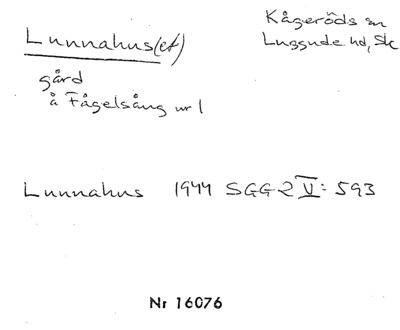 Lunnahus(et)
Kågeröds sn
Luggude hd, Sk
gård
å Fågelsång nr 1
Lunnahus 1944 SGG 2 V: 593
Nr 16076